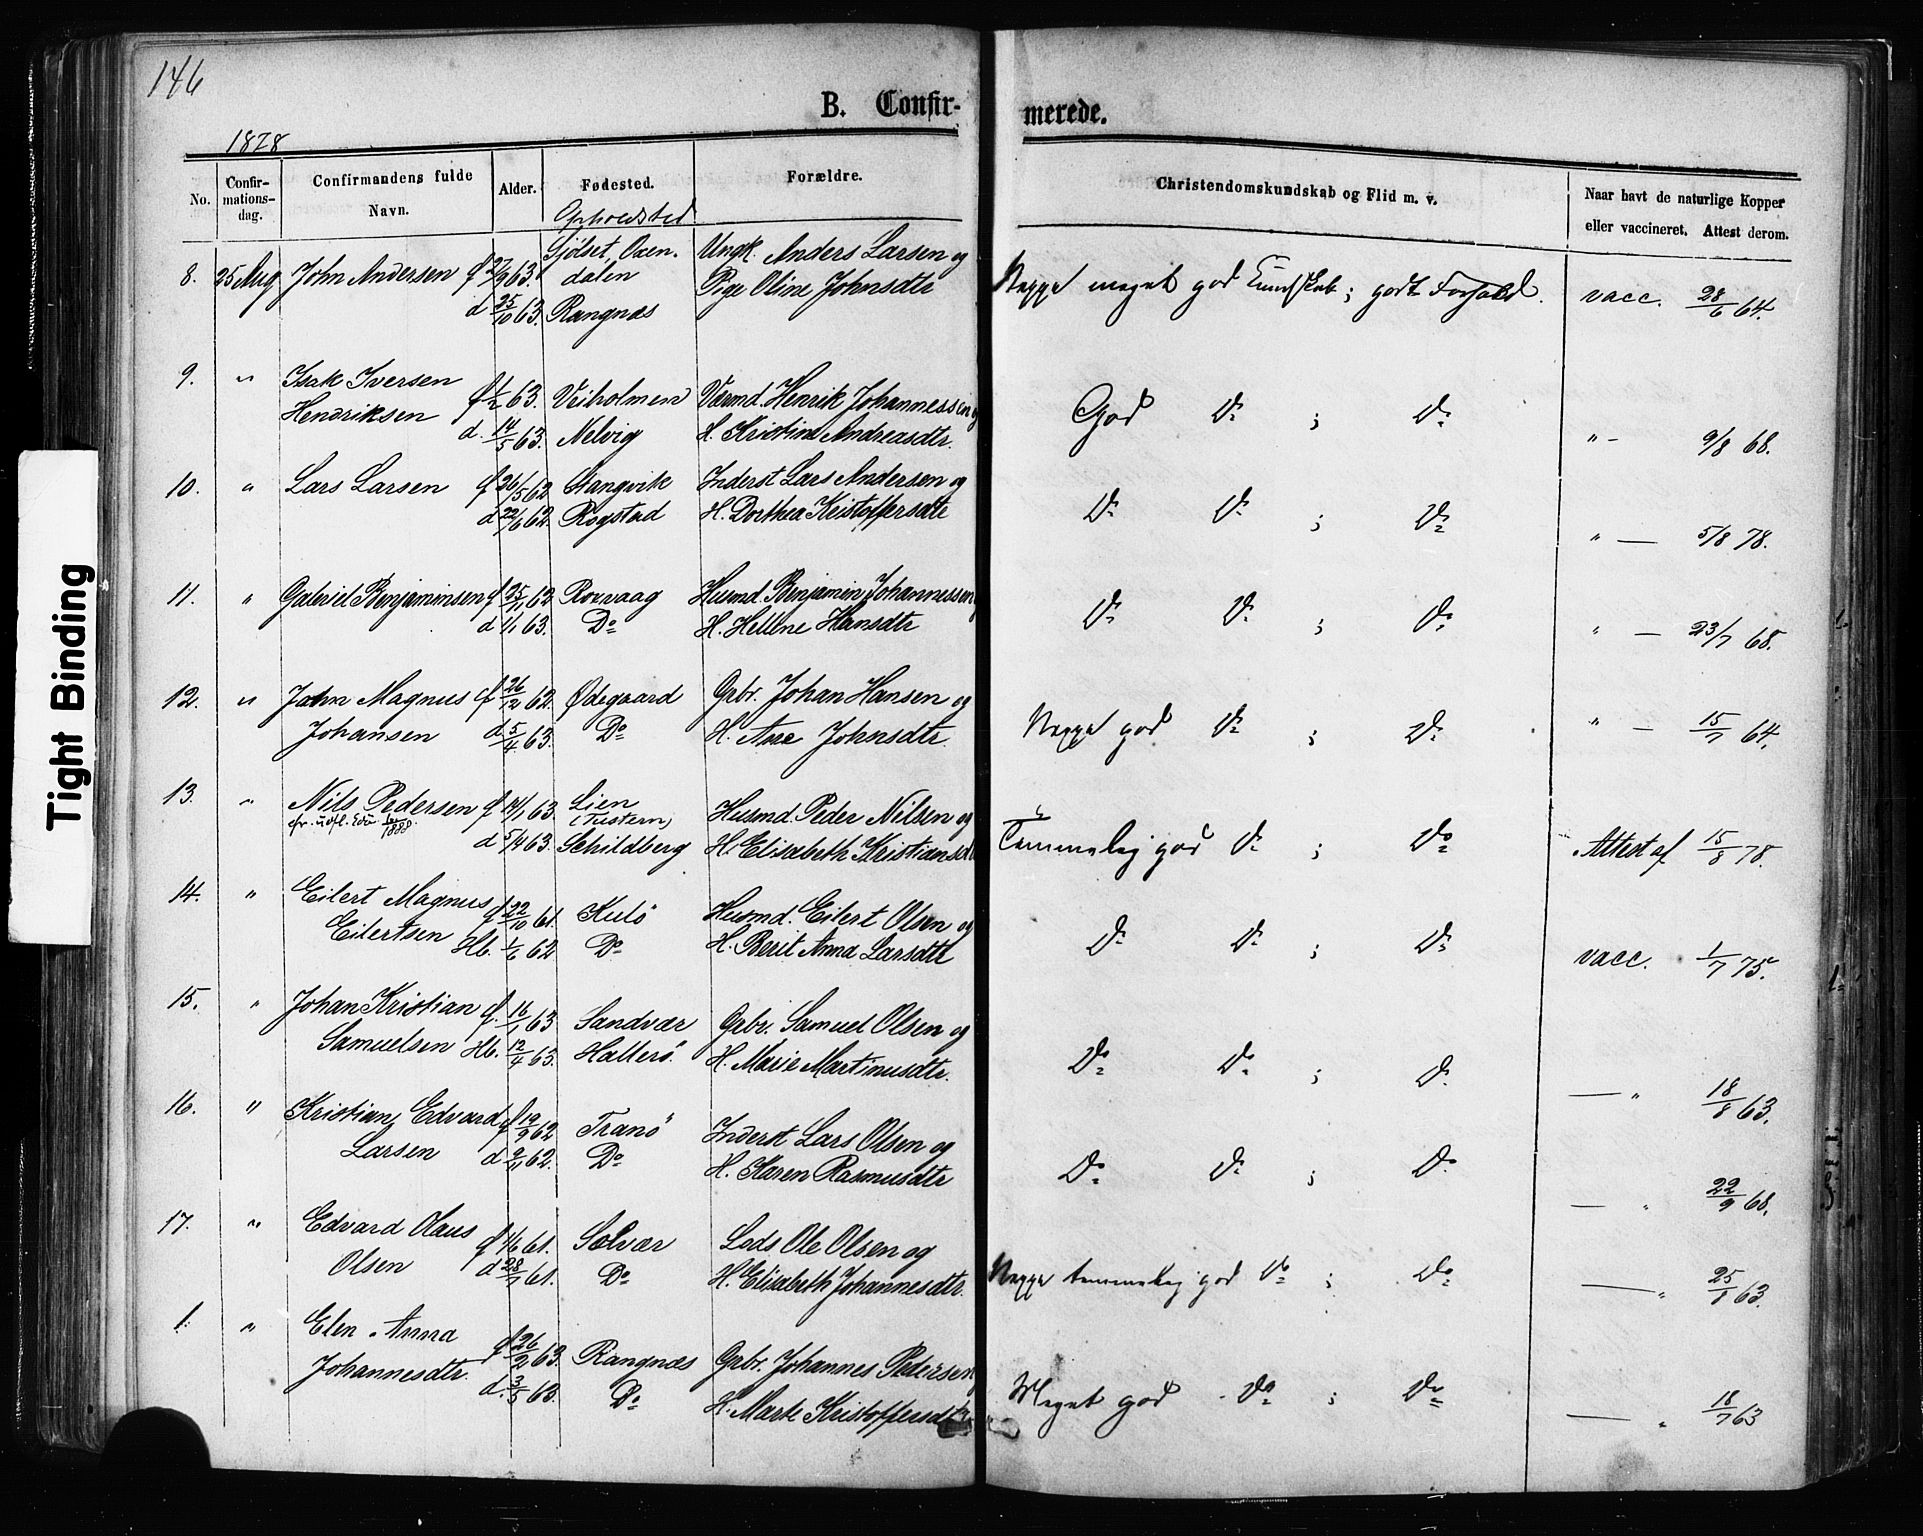 146
B. Confir-
merede.
1878
No.
Confir-
mations-
dag.
Confirmandens fulde
Navn.
Alder.
Fødested.
Opholdsted
Forældre.
Christendomskundskab og Flid m. v.
Naar havt de naturlige Kopper
eller vaccineret. Attest derom.
8. 25 Aug John Andersen f 27/9 63. Sjölset, Oxen- Ungk. Anders Larsen og
dalen Pige Oline Johnsdtr Neppe meget god Kundskab; godt Forhold. vacc. 28/6 64.
d 25/10 63. Rangnæs
9. " Isak Iversen f 1/2 63. Veiholmen Værmd. Henrik Johannessen og God Do ; Do
Hendriksen d. 14/5 63. Nelvig H. Kristine Andreasdtr. " - 9/8 68.
10. " Lars Larsen f 26/5 62 Stangvik Inderst Lars Andersen og
d 22/6 62. Rogstad H. Dorthea Kristoffersdtr Do Do ; Do " — 5/8 78.
11. " Gabriel Benjaminsen f 25/11 62 Rovvaag Husmd. Benjamin Johannessen
d 1/1 63. Do H. Hellene Hansdtr Do Do ; Do " — 23/7 68.
12. " John Magnus f 26/12 62. Ødegaard Gbr. Johan Hansen og
Johansen d 5/4 63. Do H. Ane Johnsdtr. Neppe god Do ; Do " — 15/7 64.
13. " Nils Pedersen f 14/1 63. Lien Husmd. Peder Nilsen og
(Tustern)
d 5/4 63. Schildberg H. Elisabeth Kristiansd Temmelig god Do ; Do Attest af 15/8 78.
14. " Eilert Magnus f 22/10 61. Kulö Husmd. Eilert Olsen og
Eilertsen Hb. 1/6 62 Do H. Berit Anna Larsdtr Do Do ; Do vacc. 1/7 75.
15. " Johan Kristian f. 16/1 63 Sandvær Gbr. Samuel Olsen og
Samuelsen Hb. 12/4 63. Hallerö. H. Marie Martinusdtr. Do Do ; Do — " 18/8 63.
16. " Kristian Edvard f 19/9 62 Tranö Inderst Lars Olsen og
Larsen d 9/11 62. Do H. Karen Rasmusdtr Do Do ; Do — " 22/9 68.
17. " Edvard Olaus f 4/6 61. Solvær Lods Ole Olsen og
Olsen d 28/7 61. Do H. Elisabeth Johannesdtr. Neppe temmelig god Do ; Do — " 25/8 63.
1. " Elen Anna f 26/2 63. Rangnæs Gbr. Johannes Pedersen
Johannesdtr. d. 3/5 63. Do H. Marte Kristoffersdtr Meget god Do ; Do — " 18/7 63
Tight Binding